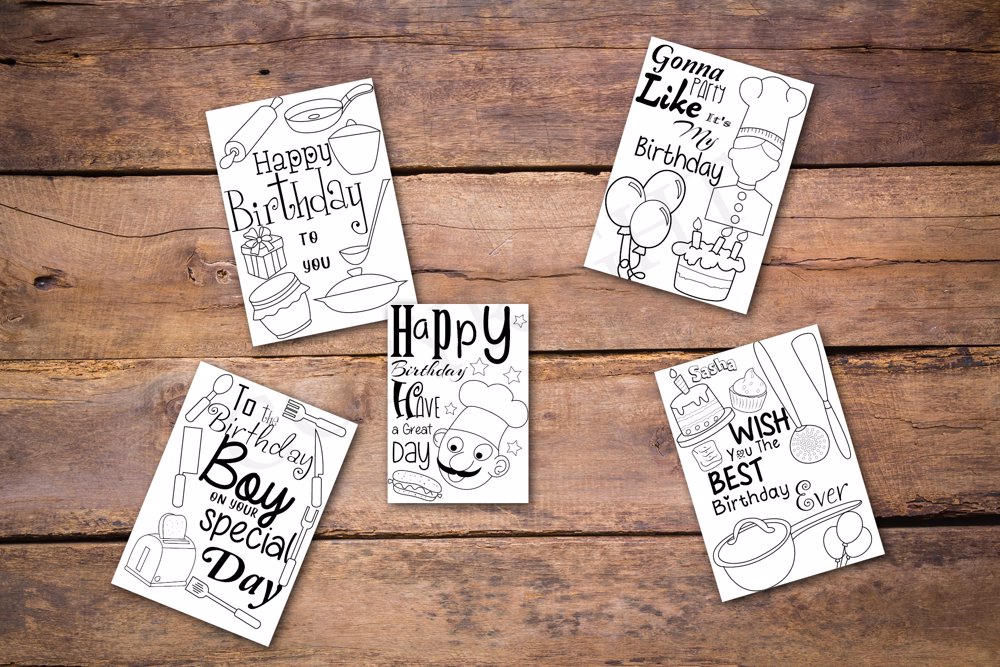 Happy
Birthday
TO
YOU
Gonna
PARTY
Like It's
My
Birthday
Happy
Birthday
HAVE
a Great
DAY
To the
Birthday
Boy
ON YOUR
special
Day
Sasha
WISH
You The
BEST
Birthday Ever